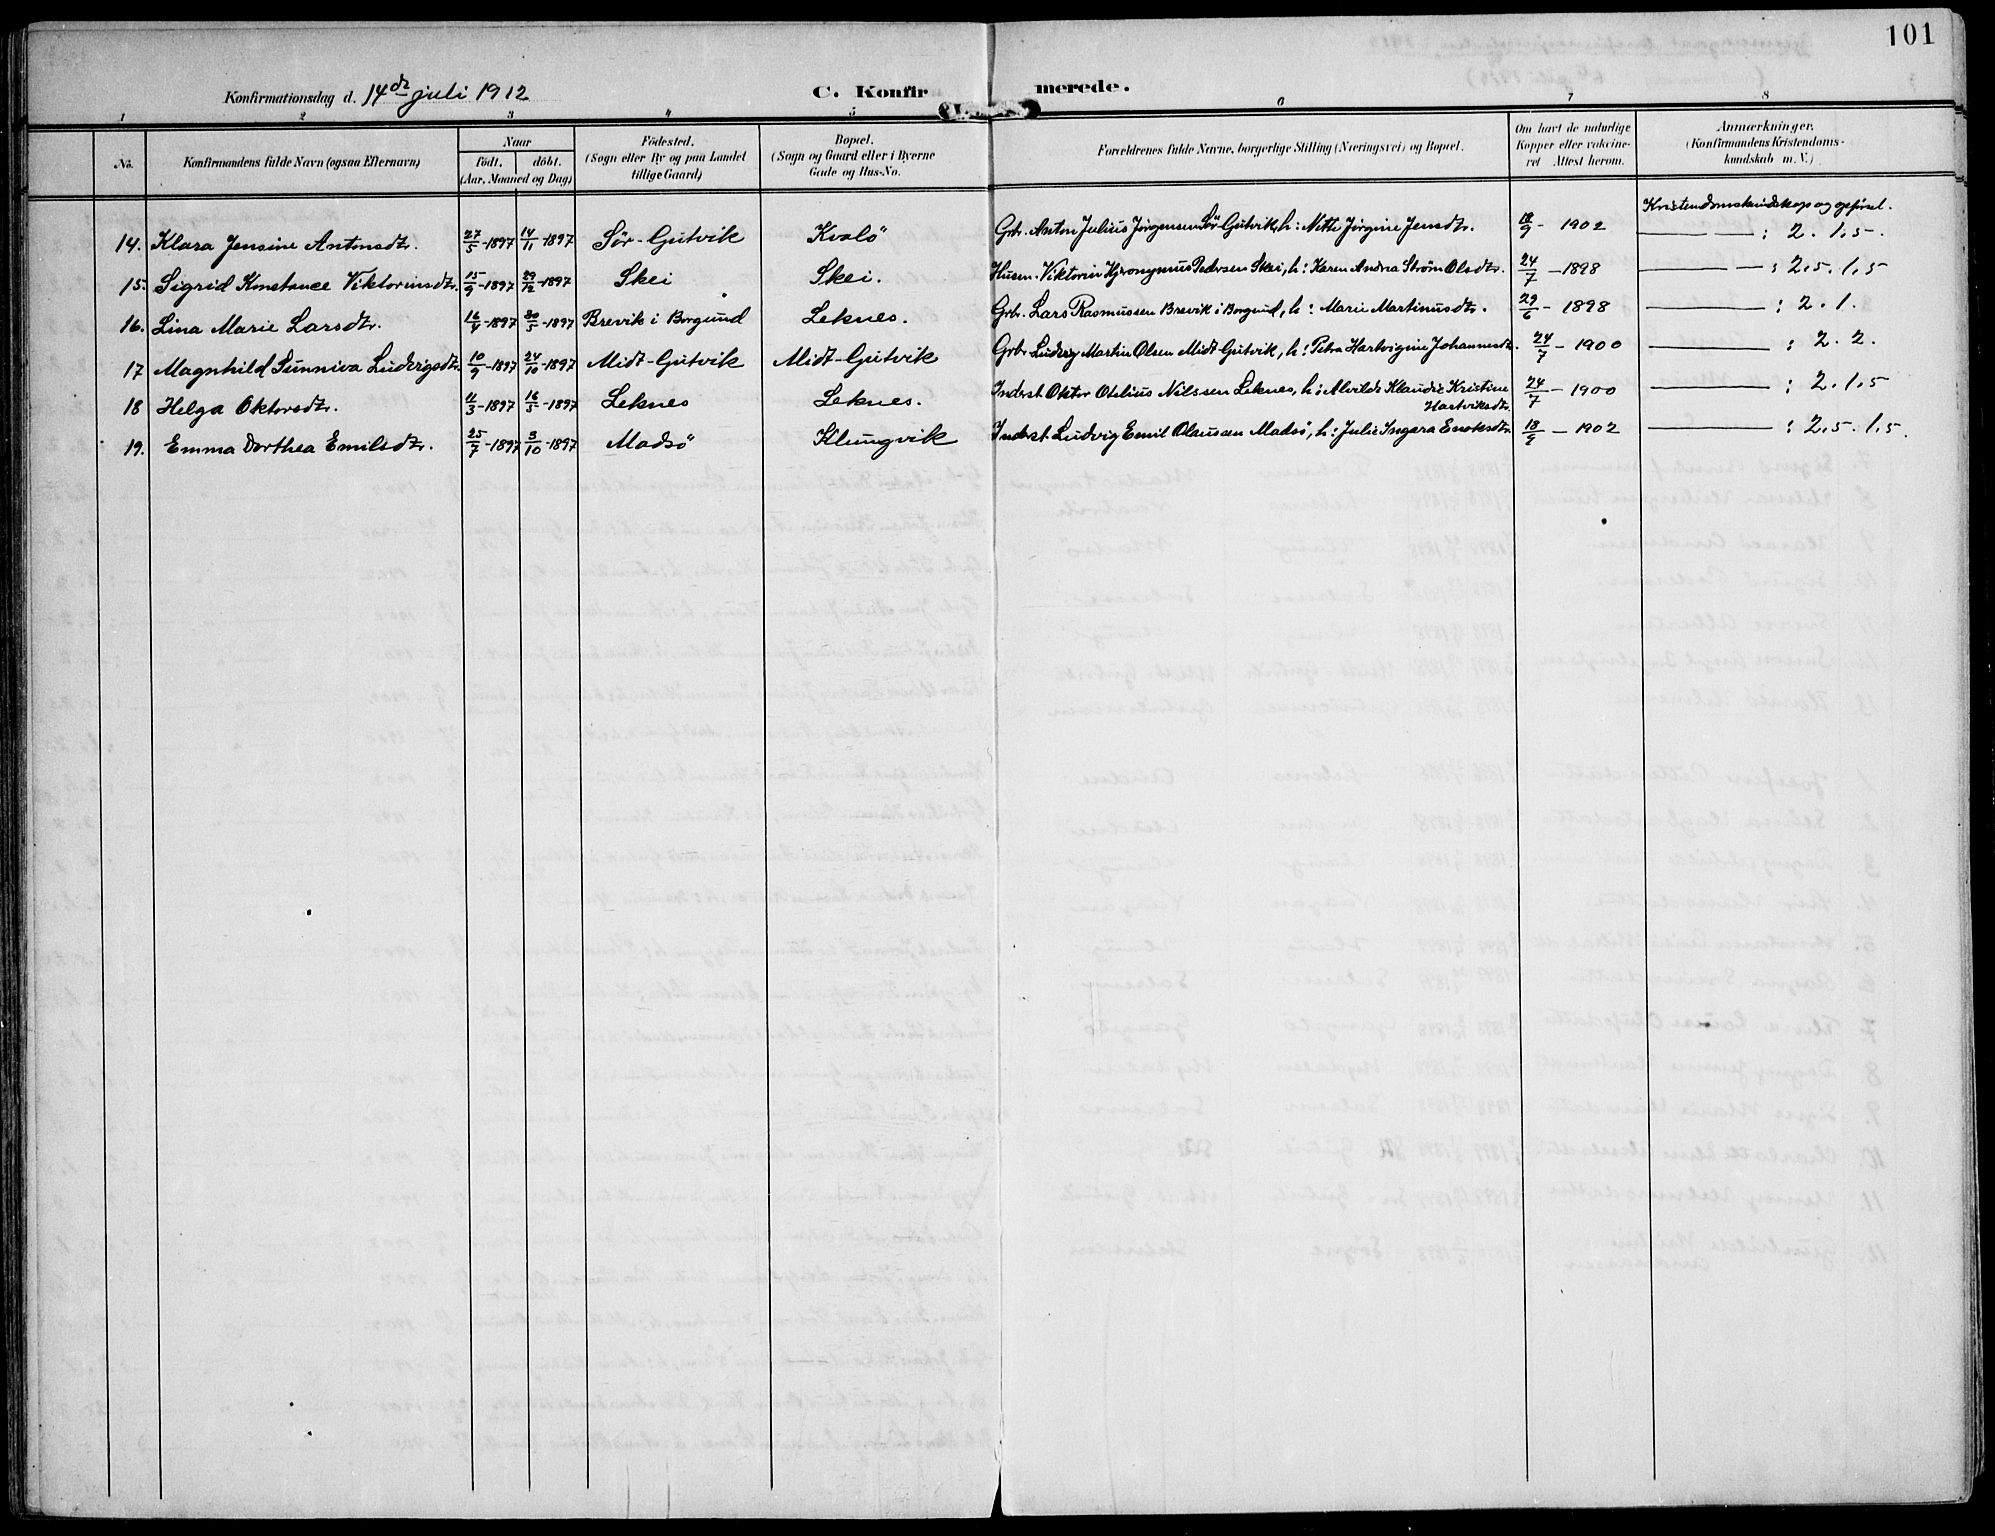 101
Konfirmationsdag d. 14de juli 1912 C. Konfirmerede.
1 2 3 4 5 6 7 8
No. Konfirmandens fulde Navn (ogsaa Efternavn) Naar født. døbt. (Aar, Maaned og Dag) Fødested. (Sogn eller By og paa Landet tillige Gaard) Bopæl. (Sogn og Gaard eller i Byerne Gade og Hus-No. Forældrenes fulde Navne, borgerlige Stilling (Næringsvei) og Bopæl. Om havt de naturlige Kopper eller vakcineret Attest herom. Anmærkninger. (Konfirmandens Kristendomskundskab m. V.)
Kristendomskundskap og opførsel.
14. Klara Jensine Antonsdtr. 27/5-1897 14/11-1897 Sør-Gutvik Kvalö Grbr. Anton Julius Jørgensen Sör-Gutvik, h: Nette Jørgine Jensdtr. 18/9 - 1902 — — : 2. 1,5.
15. Sigrid Konstance Viktorinsdtr. 15/9-1897 29/12-1897 Skei Skei. Husm. Viktorin Hjeronymus Pedersen Skei, h: Karen Andrea Strøm Olsdtr. 24/7 - 1898 — — : 2,5. 1,5
16. Lina Marie Larsdtr. 16/4-1897 30/5-1897 Brevik i Borgund Leknes. Grbr. Lars Rasmussen Brevik i Borgund, h: Marie Martinusdtr. 29/6 - 1898 — : 2. 1.
17 Magnhild Sunniva Ludvigsdtr. 10/9-1897 24/10-1897 Midt-Gutvik Midt-Gutvik Grbr. Ludvig Martin Olsen Midt-Gutvik, h: Petra Hartvigine Johannesdtr. 24/7 - 1900 — : 2. 2.
18 Helga Oktorsdtr. 11/3-1897 16/5-1897 Leknes Leknes. Inderst Oktor Otelius Nilssen Leknes, h: Alvilde Klaudie Kristine Hartviksdtr. 24/7 - 1900 — : 2. 1,5
19. Emma Dorthea Emilsdtr. 25/7-1897 3/10-1897 Madsö Klungvik Inderst. Ludvig Emil Olaussen Madsö, h: Julie Ingara Enoksdtr. 18/9 - 1902 — : 2,5. 1,5.